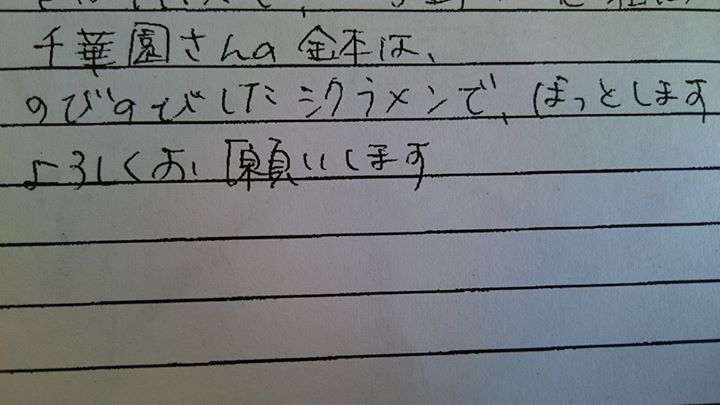 千華園さんの鉢は、
のびのびしたシクラメンで、ほっとします
よろしくお願いします